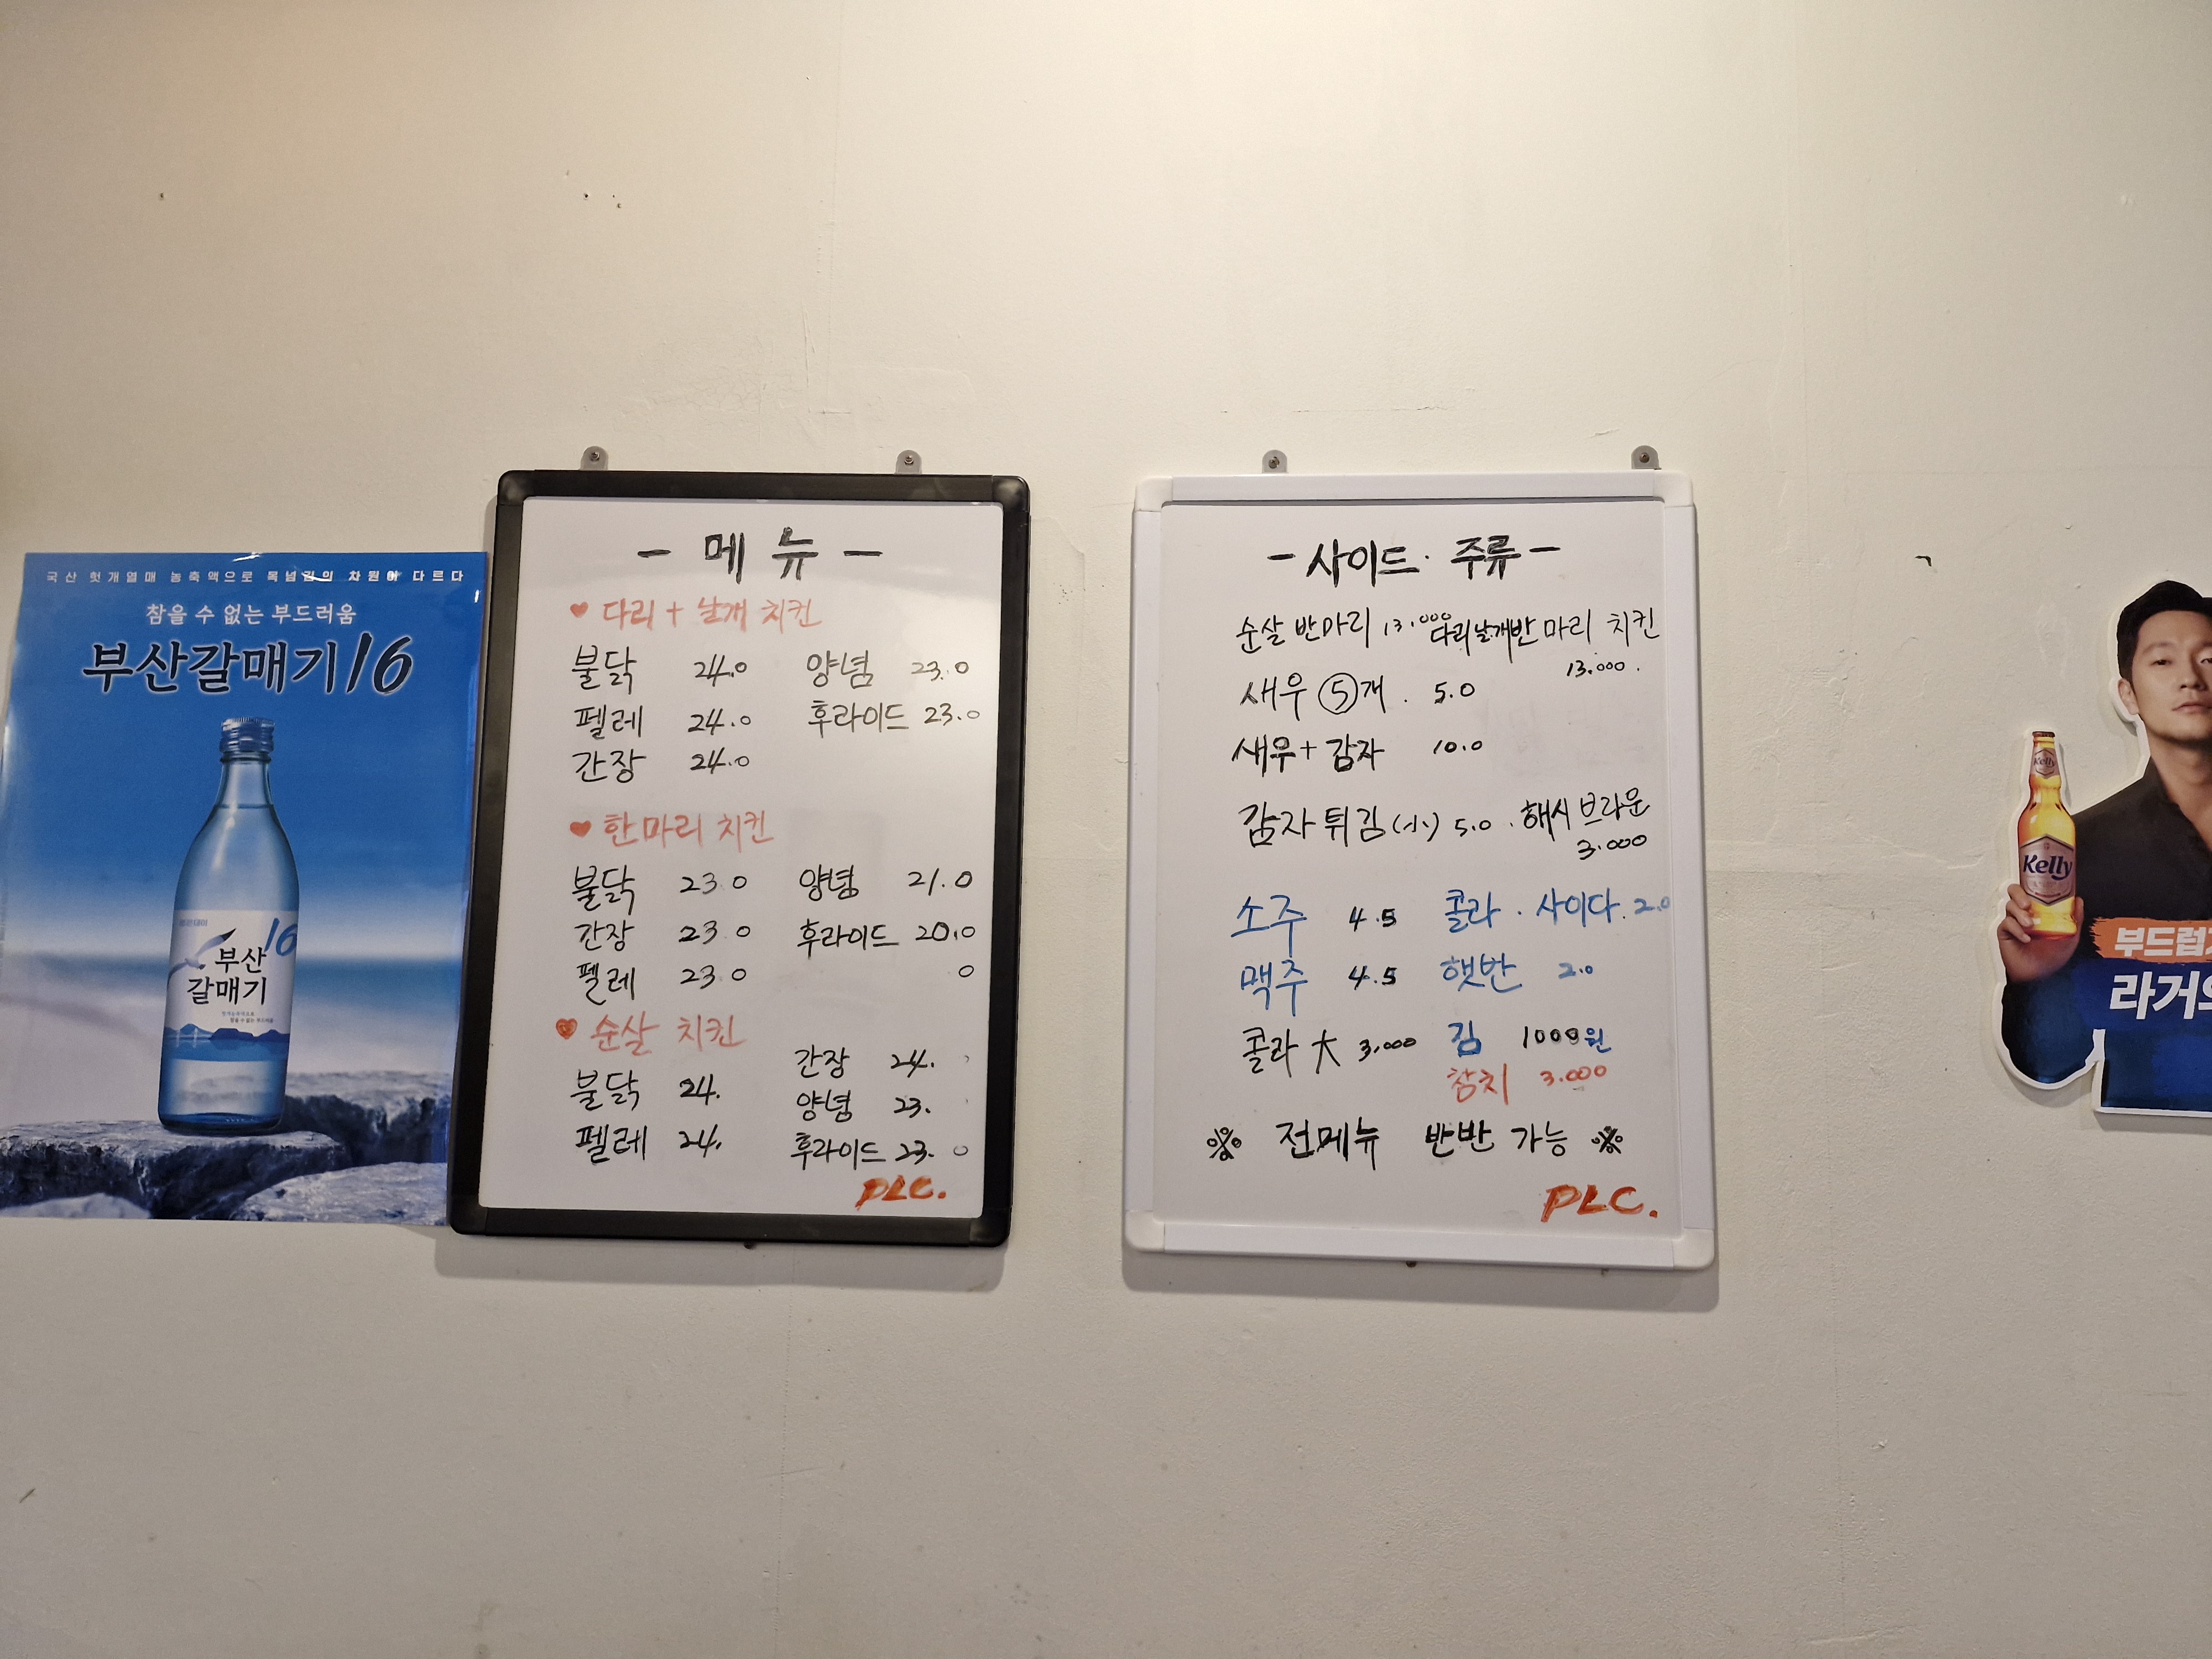 국산 헛개열매 농축액으로 목넘김의 차원이 다르다
참을 수 없는 부드러움
부산갈매기16
16
부산
갈매기
- 메뉴 -
♥ 다리 + 날개 치킨
불닭 24.0 양념 23.0
펠레 24.0 후라이드 23.0
간장 24.0
♥ 한마리 치킨
불닭 23.0 양념 21.0
간장 23.0 후라이드 20.0
펠레 23.0 0
♥ 순살 치킨
간장 24.
불닭 24.
양념 23.
펠레 24.
후라이드 23. 0
PLC.
- 사이드 · 주류 -
순살 반마리 13.000 다리날개반마리 치킨
13.000.
새우 ⑤개. 5.0
새우+감자 10.0
감자튀김(小) 5.0 . 해시브라운
3.000
소주 4.5 콜라 · 사이다. 2.0
맥주 4.5 햇반 2.0
콜라 大 3,000 김 1000원
참치 3.000
※ 전메뉴 반반 가능 ※
PLC.
Kelly
Kelly
부드럽
라거의